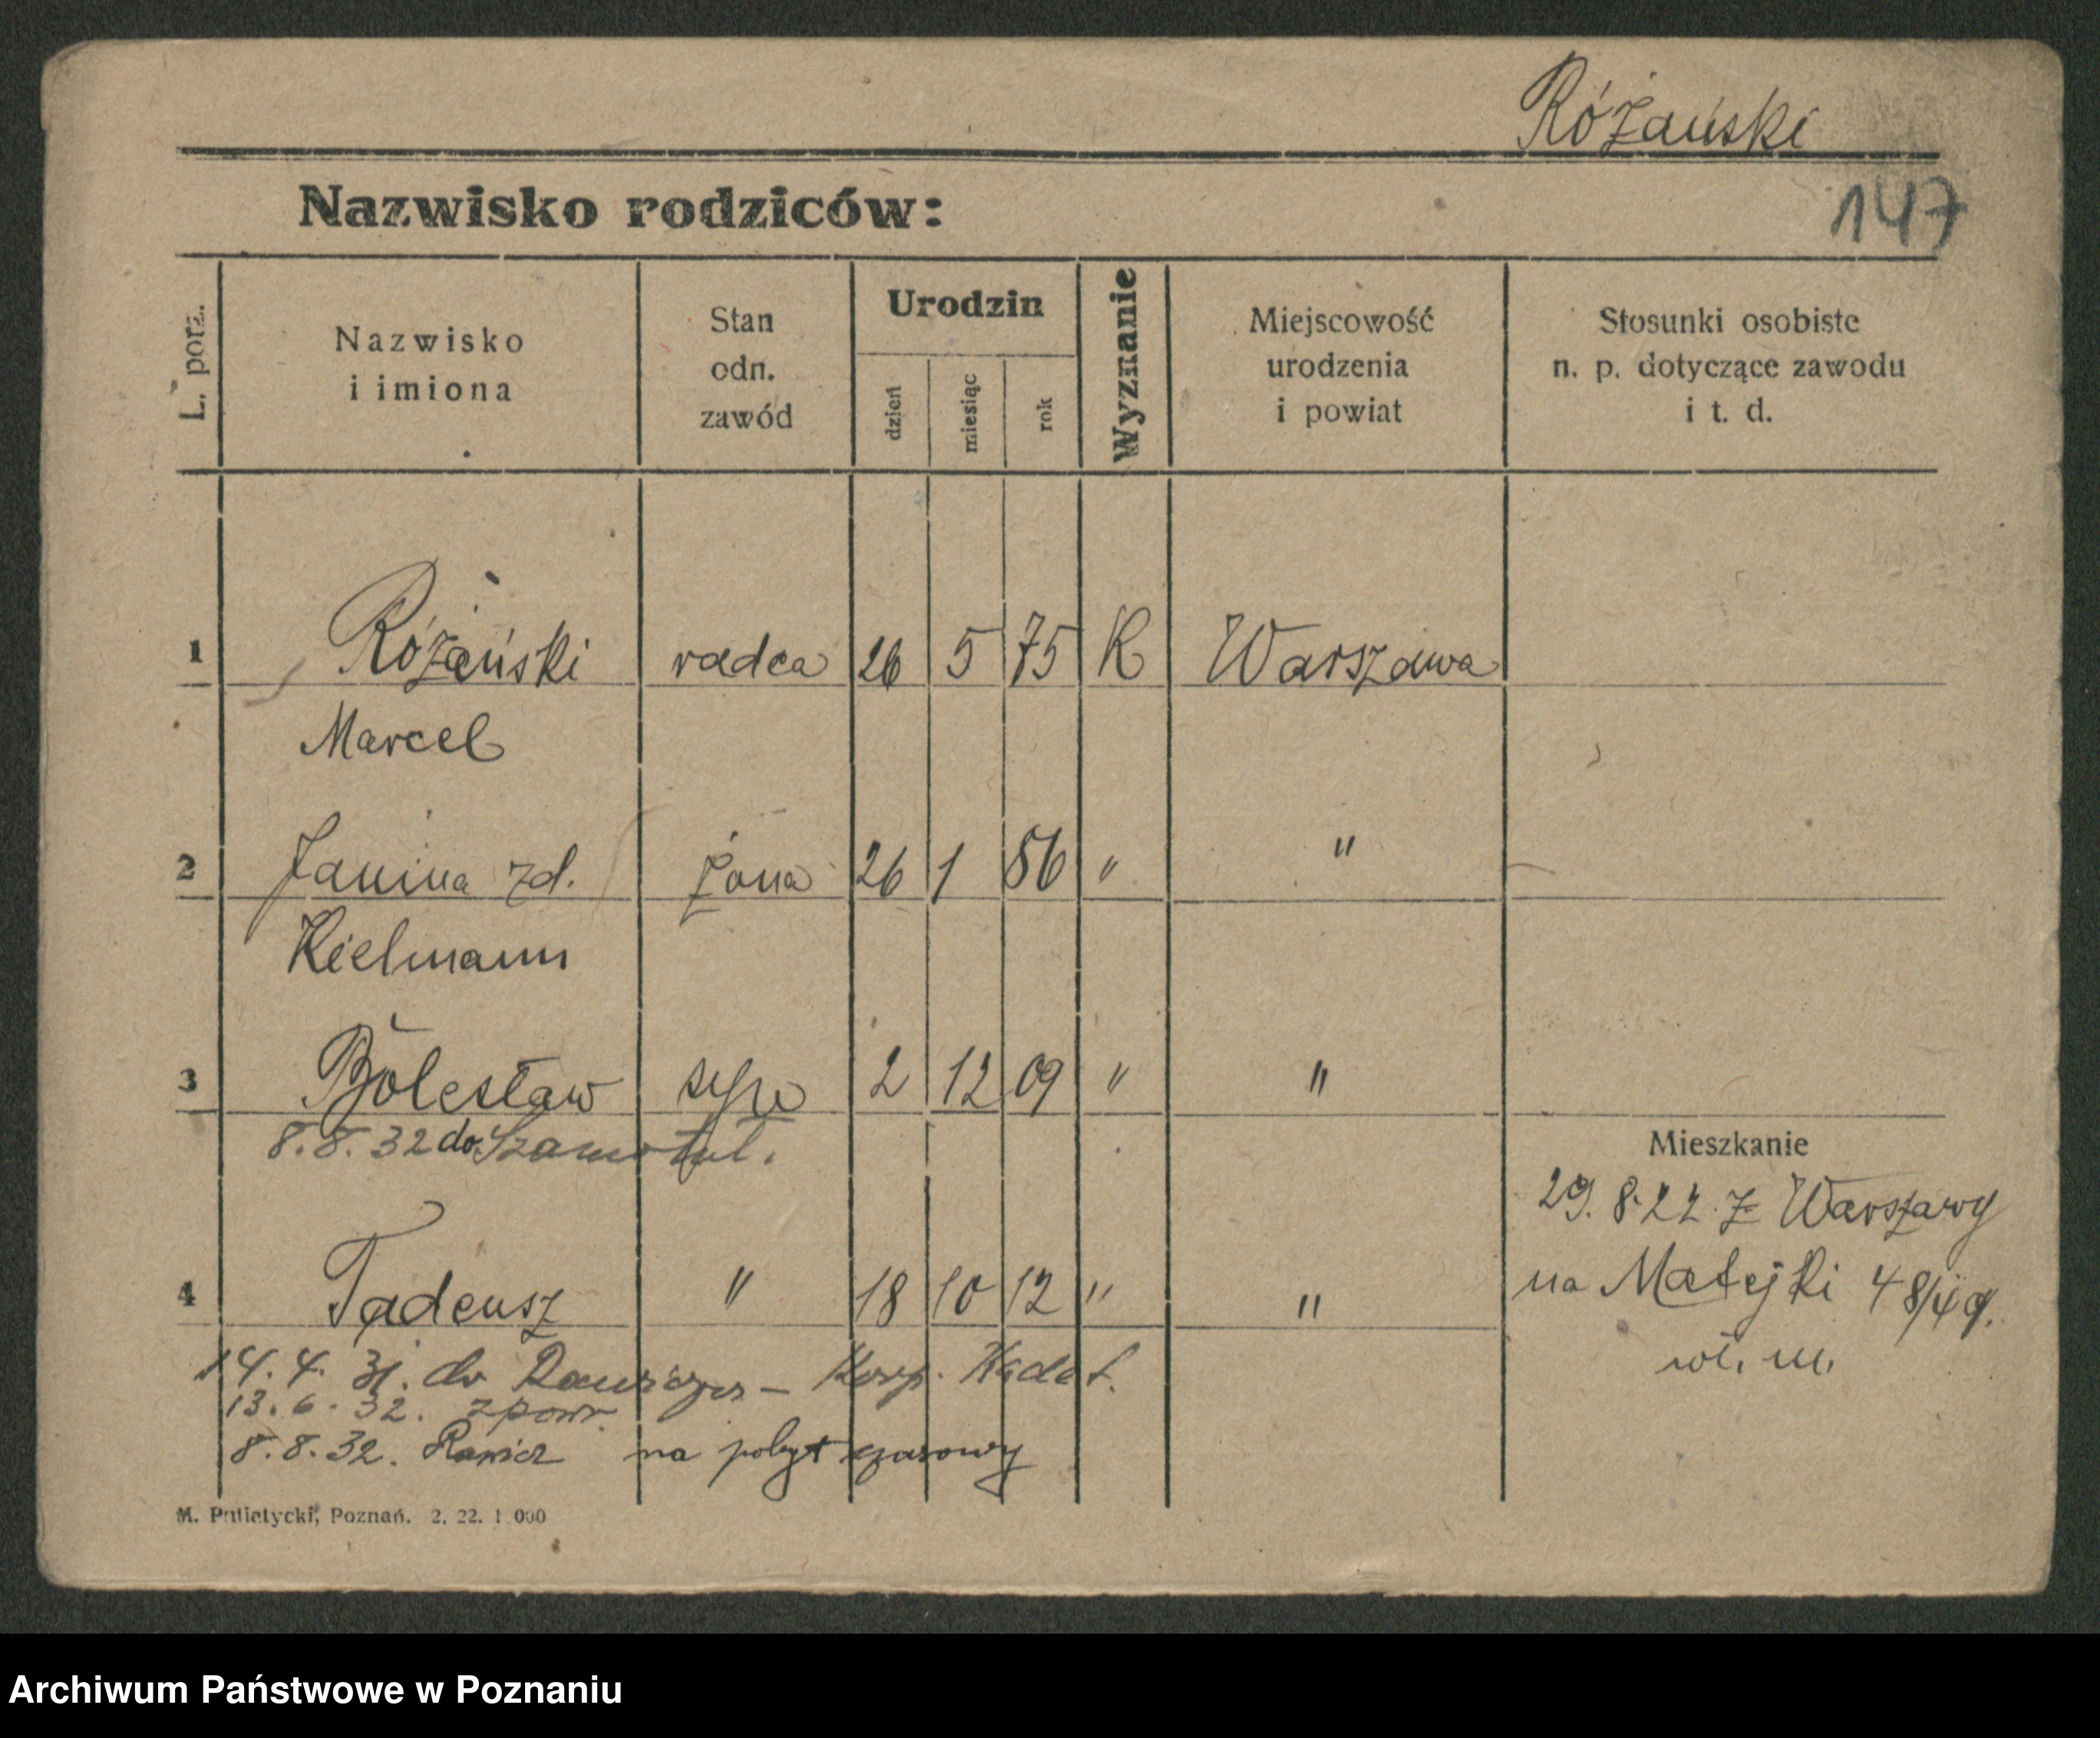 Różański
147
Nazwisko rodziców:
L. porz.
Nazwisko
i imiona
Stan
odn.
zawód
Urodzin
dzień
miesiąc
rok
Wyznanie
Miejscowość
urodzenia
i powiat
Stosunki osobiste
n. p. dotyczące zawodu
i t. d.
1 Różański radca 26 5 75 K Warszawa
Marcel
2 Janina zd. żona 26 1 86 " "
Kielmann
3 Bolesław syn 2 12 09 " "
8.8.32 do Szamotuł.
Mieszkanie
29.8.22. z Warszawy
na Matejki 48/49.
wł. m.
4 Tadeusz " 18 10 12 " "
14.4.31. do Rawicza – Korp. Kadet.
13.6.32. zpowr.
8.8.32. Rawicz na pobyt czasowy
M. Putiatycki, Poznań. 2. 22. 1 000
Archiwum Państwowe w Poznaniu